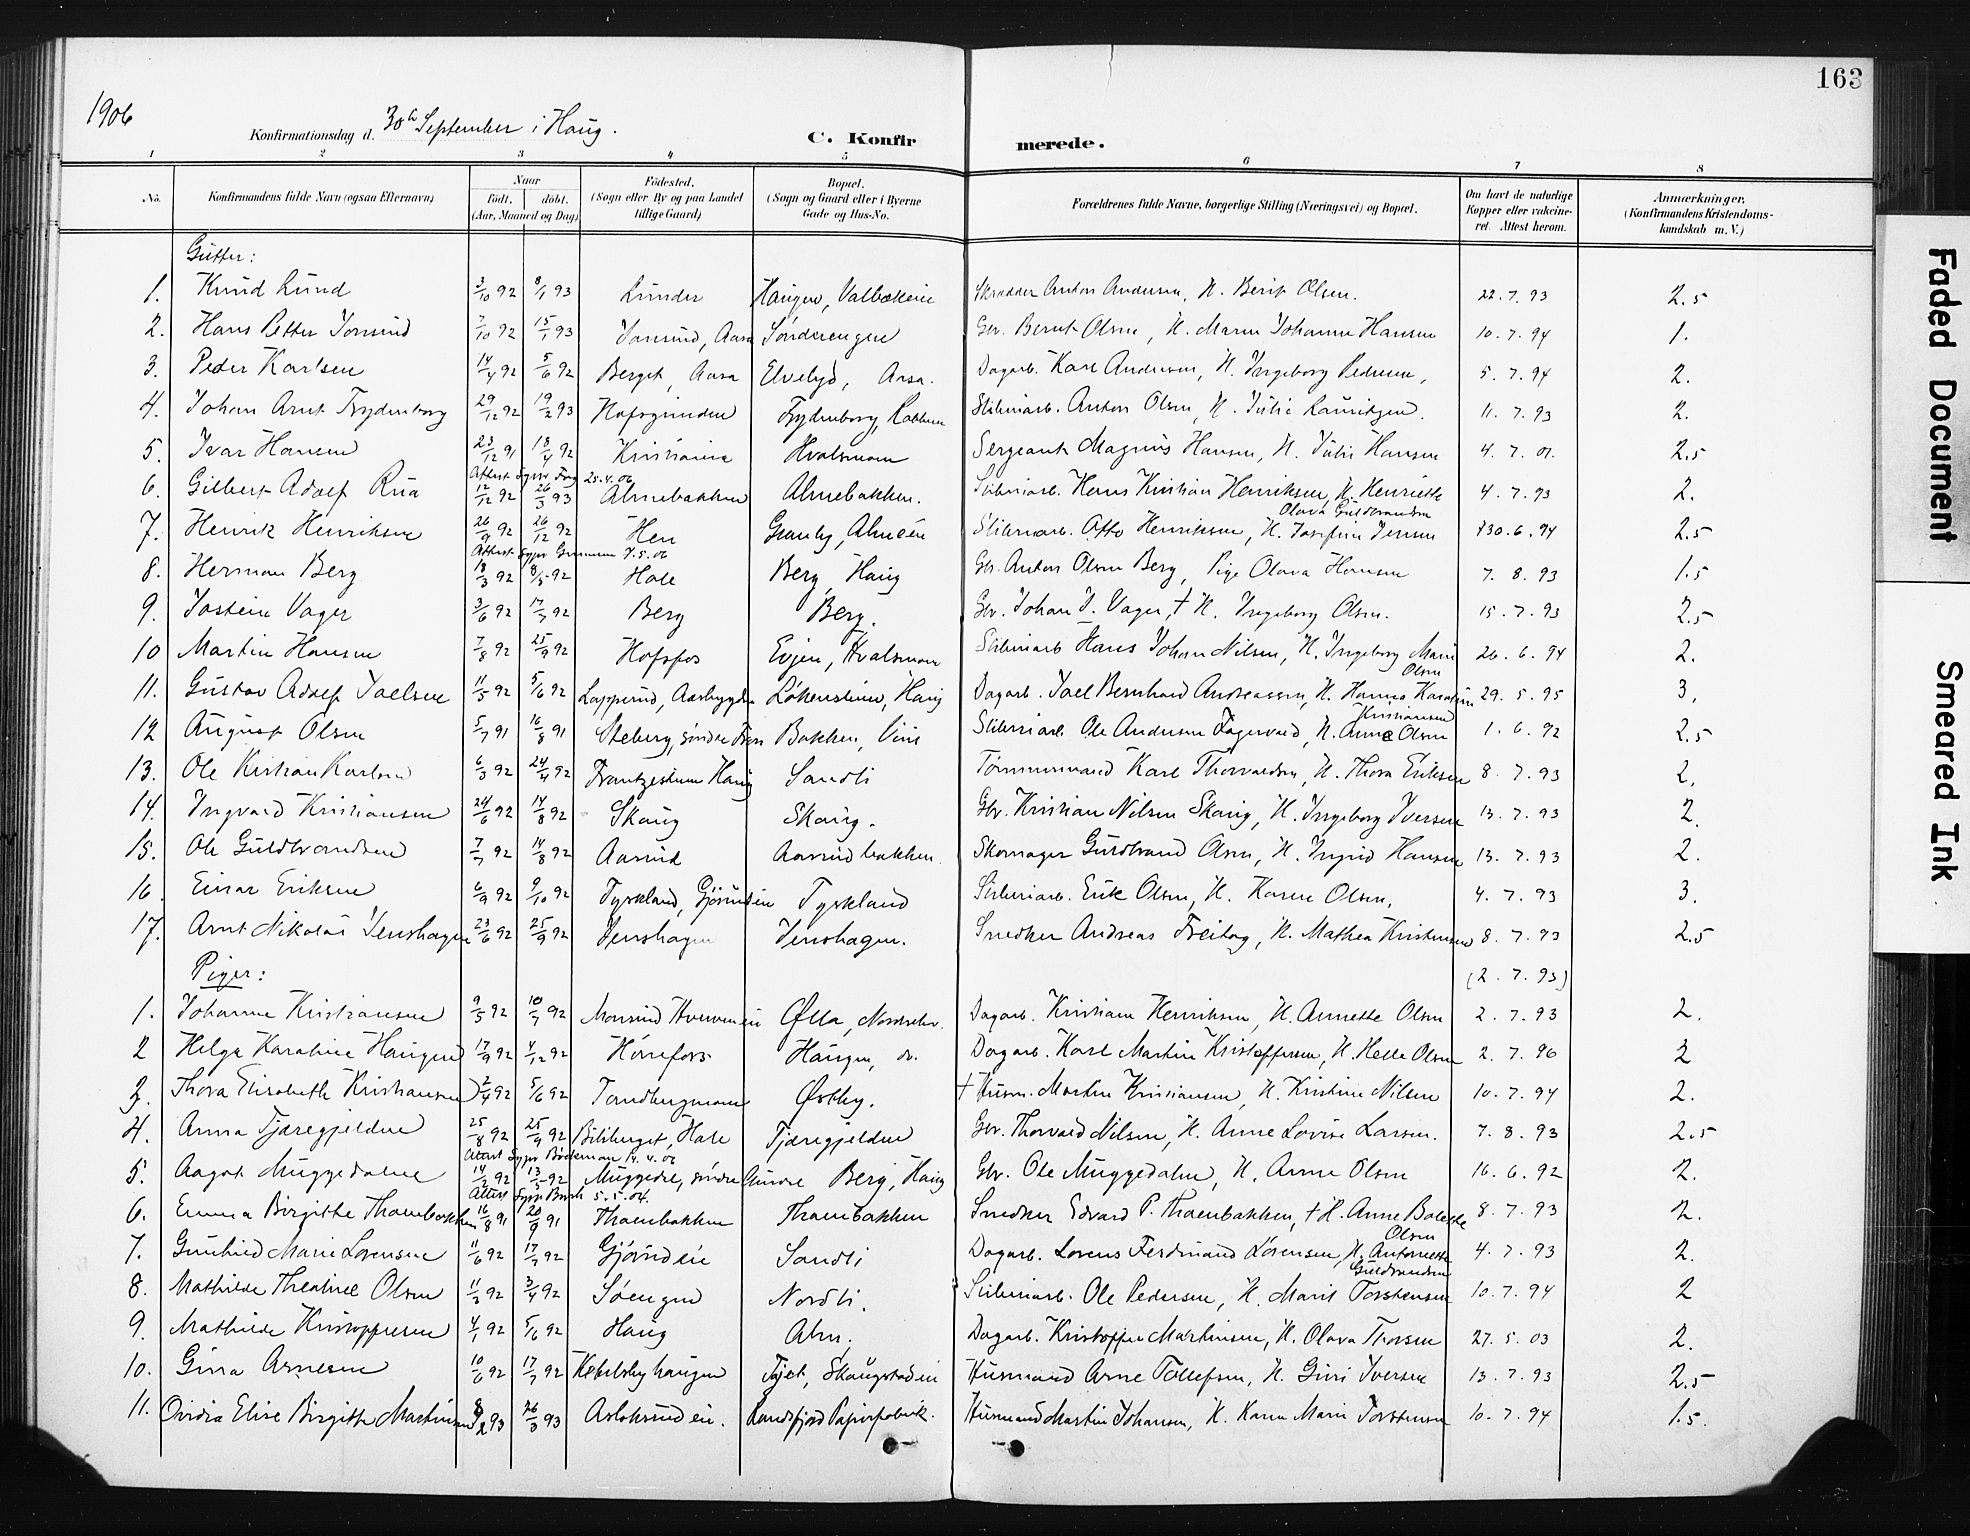 163
1906
Konfirmationsdag d. 30te September i Haug.
C. Konfirmerede.
1 2 3 4 5 6 7 8
No. Konfirmandens fulde Navn (ogsaa Efternavn) Naar født. døbt. (Aar, Maaned og Dag) Fødested. (Sogn eller By og paa Landet tillige Gaard) Bopæl. (Sogn og Gaard eller i Byerne Gade og Hus-No. Forældrenes fulde Navne, borgerlige Stilling (Næringsvei) og Bopæl. Om havt de naturlige Kopper eller vakcineret. Attest herom. Anmærkninger. (Konfirmandens Kristendomskundskab m. V.)
Gutter:
1. Knud Lund 3/10 92 8/1 93 Lunder Haugen, Skrædder Anton Andersen, H. Berit Olsen. 22.7.93 2.5
2. Hans Petter 7/10 92 15/1 93 Aasa Sønderengen Gbr. Bernt Olsen, H. Maren Johanne Hansen 10.7.94 1.
3. Peder Karlsen 14/4 92 5/6 92 Berget, Aasa Elvebyd, Aasa. Dagarb. Karl Andersen, H. Ingeborg Pedersen, 5.7.94 2.
4. Johan Arnt Frydenborg 29/12 92 19/2 93 Hofsgrinden Frydenborg, Sliberiarb. Anton Olsen, H. Julie Lauritzen. 11.7.93 2.
5. Ivar Hansen 23/12 91 18/4 92 Kristiania Hvalsmoen Sergeant Magnus Hansen, H. Julie Hansen 4.7.01. 2.5
Attest 25.4.06
6. Gilbert Adolf Rua 12/12 92 26/3 93 Almebakken Almebakken. Sliberiarb. Hans Kristian Henriksen, H. Henriette Olava Guldbrandsen 4.7.93 2.
7. Henrik Henriksen 26/9 92 26/12 92 Hen Granly, Almeeie Sliberiarb. Otto Henriksen, H. Josefine Jensen 30.6.94 2.5
Attest 7.5.06
8. Herman Berg 18/3 92 8/5 92 Hole Berg, Haug Gbr. Anton Olsen Berg, Pige Olava Hansen 7.8.93 1.5
9. Jostein Vager 3/6 92 17/7 92 Berg Berg. Gbr. Johan J. Vager, † H. Ingeborg Olsen. 15.7.93 2.5
10 Martin Hansen 7/8 92 25/9 92 Hofsfos Evjen, Hvalsmoen Sliberiarb Hans Johan Nilsen, H. Ingeborg Marie Olsen 26.6.94 2.
11. Gustav Adolf Joelsen 11/5 92 5/6 92 Lapperud, Aasbygden Løkensteien, Haug Dagarb. Joel Bernhard Andreassen, H. Hanna Karoline Kristiansen 29.5.95 3,
12 August Olsen 5/7 91 16/8 91 Steberg, søndre Bakken, Viul Sliberiarb. Ole Andersen Fagervold, H. Anne Olsen 1.6.92 2.5
13. Ole Kristian Karlsen 6/3 92 24/4 92 Haug Sandli Tømmermand Karl Thorvaldsen, H. Thora Eriksen 8.7.93 2,
14. Ingvald Kristiansen 24/6 92 14/8 92 Skaug Skaug. Gbr. Kristian Nilsen Skaug, H. Ingeborg Iversen 13.7.93 2.
15. Ole Guldbrandsen 7/7 92 14/8 92 Aasrud Aasrudbakken. Skomager Guldbrand Olsen, H. Ingrid Hansen 13.7.93 2.
16 Einar Eriksen 6/9 92 9/10 92 Tyskland, Gjørudeie Tyskland Sliberiarb. Erik Olsen, H. Karen Olsen. 4.7.93 3.
17. Arnt Nikolai Jenshagen 23/6 92 25/9 92 Jenshagen Jenshagen. Snedker Andreas Freitag, H. Mathea Kristensen 8.7.93 2.5
Piger: (2.7.93)
1. Johanne Kristiansen 9/5 92 10/7 92 Ølla, Dagarb. Kristian Henriksen, H. Annette Olsen 2.7.93 2.
2 Helga Karoline Haugen 17/9 92 4/12 92 Hønefos Haugen, Dagarb. Karl Martin Kristoffersen, H. Helle Olsen 2.7.96 2
3. Thora Elisabeth Kristiansen 2/4 92 5/6 92 Tandbergmoen Østby. † Husm. Martin Kristiansen, H. Kristine Nilsen 10.7.94 2.
4. Anna Tjæregjelden 25/8 92 25/9 92 Biliberget, Hole Tjæregjelden Gbr. Thorvald Nilsen, H. Anne Lovise Larsen. 7.8.93 2.5
Attest 14.4.06
5. Aagot Muggedalen 14/2 92 13/3 92 Muggedal, søndre Aurdal Berg, Haug Gbr. Ole Muggedalen, H. Anne Olsen 16.6.92 2.
Attest 5.5.04.
6. Emma Birgitte Thoenbakken 16/8 91 20/9 91 Thoenbakken Thoenbakken Snedker Edvard P. Thoenbakken, † H. Anne Bolette Olsen 8.7.93 2.
7. Gunhild Marie Lorensen 11/6 92 17/7 92 Gjørudeie Sandli Dagarb. Lorens Ferdinand Lorensen, H. Antonette Guldbrandsen 4.7.93 2.
8. Mathilde Theoline Olsen 11/2 92 3/4 92 Søengen Nordli. Sliberiarb. Ole Pedersen, H. Marit Torstensen 10.7.94 2
9. Mathilde Kristoffersen 4/1 92 5/6 92 Haug Alm. Dagarb. Kristoffer Martinsen, H. Olava Thorsen 27.5.03 2.
10. Gina Arnesen 10/6 92 17/7 92 Kihelsbyhaugen Tajet, Skaugstadeie Husmand Arne Tollefsen, H. Guri Iversen 13.7.93 2.5
11. Ovidia Elise Birgitte Martinsen 8/2 93 26/3 93 Aslaksrudeie. Randsfjord Papirfabrik. Husmand Martin Johansen, H. Karen Marie Torstensen 10.7.94 1.5.
Faded Document
Smeared Ink